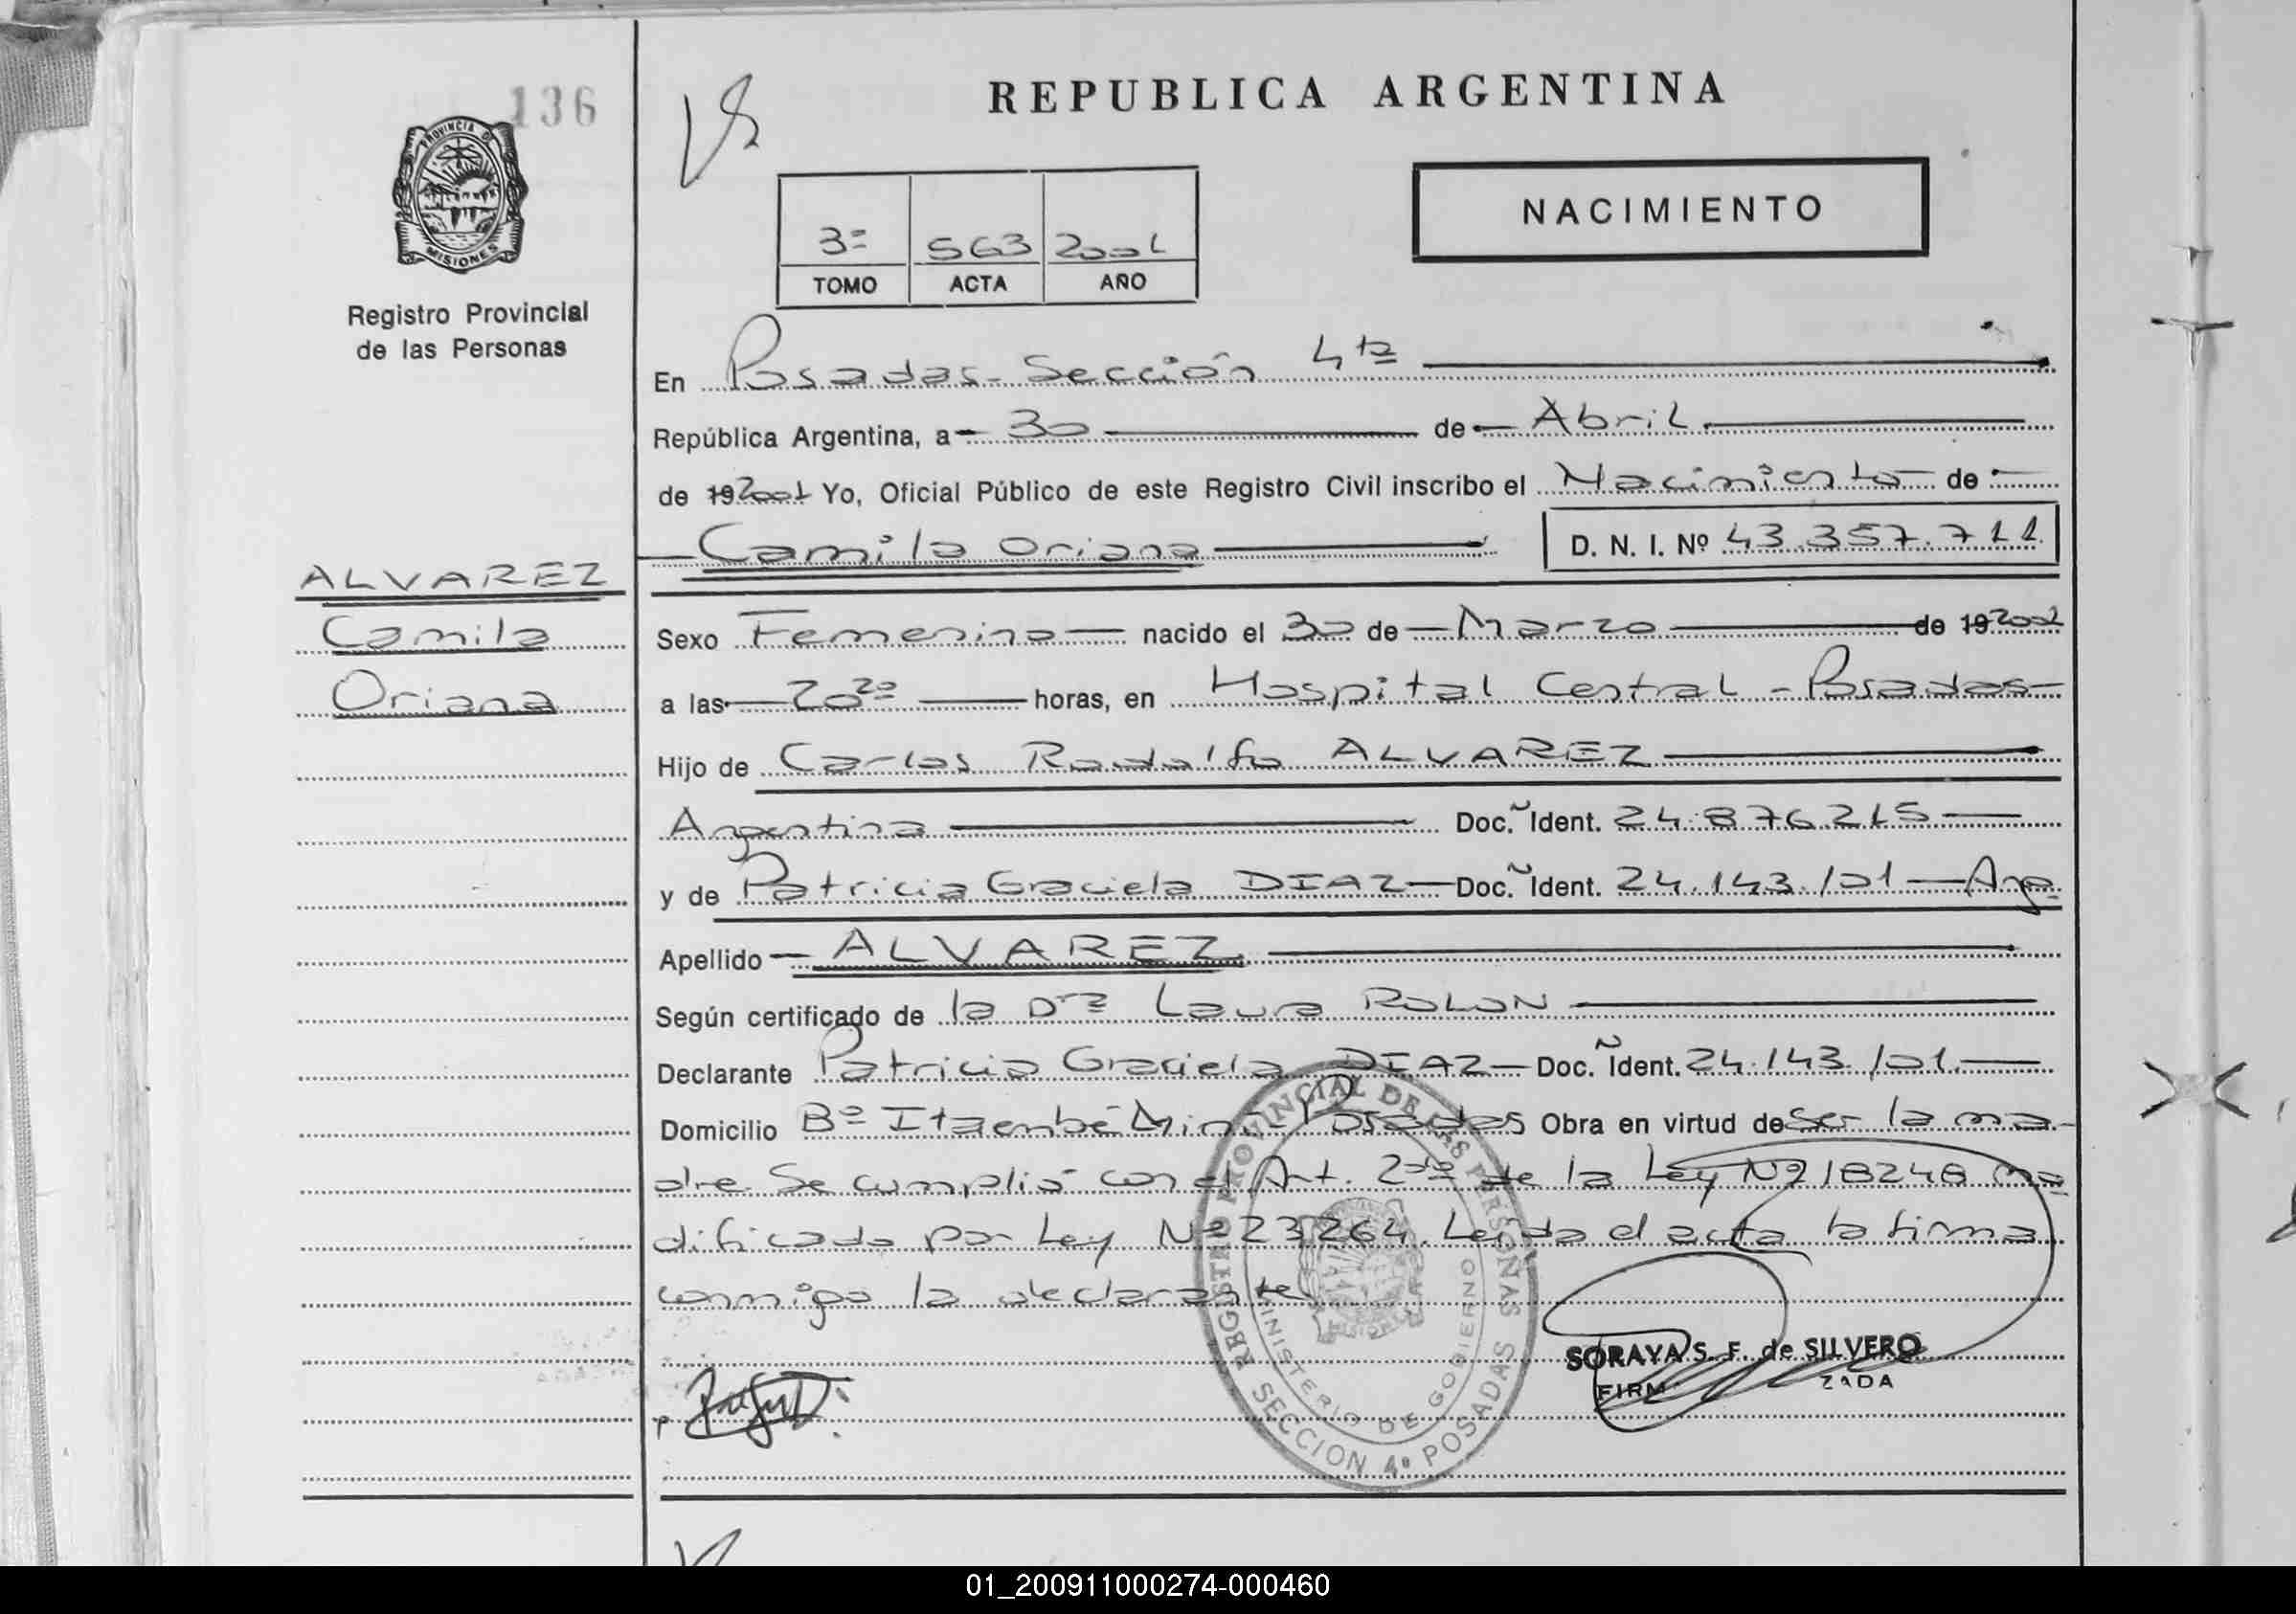 136
REPUBLICA ARGENTINA
PROVINCIA DE MISIONES
NACIMIENTO
3º 563 2001
TOMO ACTA AÑO
Registro Provincial
de las Personas
En Posadas - Sección 4ta
República Argentina, a 30 de Abril
de 19 2001 Yo, Oficial Público de este Registro Civil inscribo el Nacimiento de
Camila Oriana D. N. I. Nº 43.357.711
ALVAREZ
Camila
Oriana
Sexo Femenino nacido el 30 de Marzo de 19 2001
a las 20 20 horas, en Hospital Central - Posadas
Hijo de Carlos Rodolfo ALVAREZ
Argentina Doc. Ident. 24.876.215
y de Patricia Graciela DIAZ Doc. Ident. 24.143.101 Arg.
Apellido ALVAREZ
Según certificado de la Dra Laura ROLON
Declarante Patricia Graciela DIAZ Doc. Ident. 24.143.101
Domicilio Bº Itaembé Miní - Posadas Obra en virtud de ser la ma-
dre. Se cumplió con el Art. 2do de la Ley Nº 18248 mo
dificado por Ley Nº 23264. Leida el acta la firma
conmigo la declarante
REGISTRO PROVINCIAL DE LAS PERSONAS
MINISTERIO DE GOBIERNO
SECCION 4º POSADAS
SORAYA S. F. de SILVERO
01_200911000274-000460